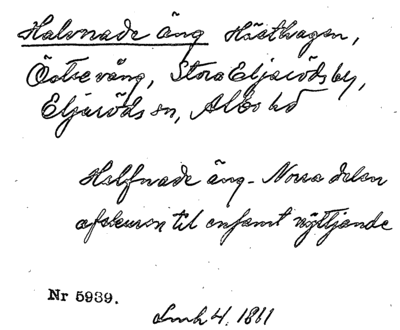 Halvnade äng Hästhagen,
Östrevång, Stora Eljarödsby,
Eljaröds sn, Albo hd
Halfnade äng - Norra delen
afskuren til enfamt nyttjande
Nr 5939.
Lmh 4. 1811